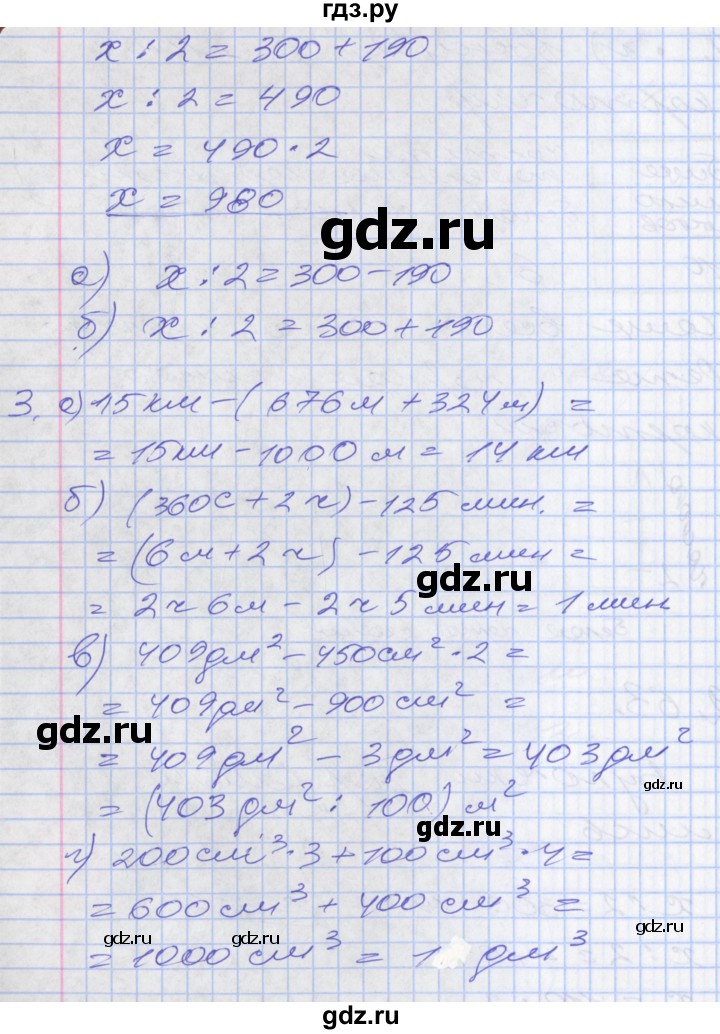 гдз.ру
x : 2 = 300 + 190
x : 2 = 490
x = 490 · 2
x = 980
gdz.ru
а) x : 2 = 300 - 190
б) x : 2 = 300 + 190
3. а) 15 км - ( 676 м + 324 м) =
= 15 км - 1000 м = 14 км
б) (360с + 2 ч) - 125 мин. =
= (6 м + 2 ч) - 125 мин =
gdz.ru
= 2ч 6м - 2ч 5 мин = 1 мин
в) 409 дм² - 450 см² · 2 =
= 409 дм² - 900 см² =
gdz.ru
= 409 дм² - 3 дм² = 403 дм²
gdz.ru
= (403 дм² : 100) м²
gdz.ru
г) 200 см³ · 3 + 100 см³ · 4 =
= 600 см³ + 400 см³ =
gdz.ru gdz.ru
= 1000 см³ = 1 дм³
gdz.ru
gdz.ru
gdz.ru